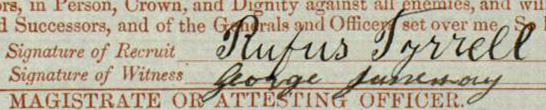 ors, in Person, Crown, and Dignity against all enemies, and will
d Successors, and of the Generals and Officers set over me. So
Signature of Recruit Rufus Tyrrell
Signature of Witness George
MAGISTRATE OR ATTESTING OFFICER.